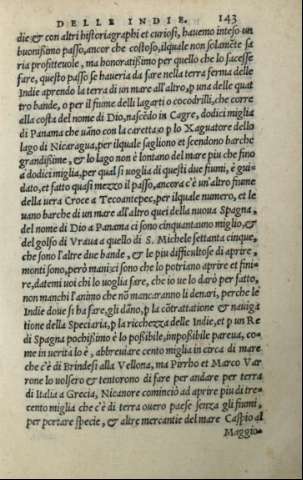 DELLE INDIE. 143
die & con altri historiagraphi et curiosi, hauemo inteso un
buonissimo passo, ancor che costoso, ilquale non solamẽte sa
ria profitteuole, ma honoratissimo per quello che lo facesse
fare, questo passo se haueria da fare nella terra ferma delle
Indie aprendo la terra di un mare all'altro, p una delle quat
tro bande, o per il fiume delli lagarti o cocodrilli, che corre
alla costa del nome di Dio, nascẽdo in Cagre, dodici miglia
di Panama che uãno con la caretta, o p lo Xaguatore dello
lago di Nicaragua, per ilquale sagliono et scendono barche
grandissime, & lo lago non è lontano del mare piu che fino
a dodici miglia, per qual si uoglia di questi due fiumi, è gui-
dato, et fatto quasi mezzo il passo, ancora c'è un'altro fiume
della uera Croce a Tecoantepec, per ilquale numero, et le
uano barche di un mare all'altro quei della nuoua Spagna,
del nome di Dio a Panama ci sono cinquantauno miglio, &
del golfo di Vraua a quello di S. Michele settanta cinque,
che sono l'altre due bande, & le piu difficultose di aprire,
monti sono, però mani ci sono che lo potriano aprire et fini-
re, datemi uoi chi lo uoglia fare, che io ue lo darò per fatto,
non manchi l'animo che nõ mancaranno li denari, perche le
Indie doue si ha fare, gli dãno, p la cõtrattatione & nauiga
tione della Speciaria, p la ricchezza delle Indie, et p un Re
di Spagna pochissimo è lo possibile, impossibile pareua, co-
me in uerità lo è, abbreuiare cento miglia in circa di mare
che c'è di Brindesi alla Vellona, ma Pirrho et Marco Var
rone lo uolsero & tentorono di fare per andare per terra
di Italia a Grecia, Nicanore cominciò ad aprire piu di tre-
cento miglia che c'è di terra ouero paese senza gli fiumi,
per portare specie, & altre mercantie del mare Caspio al
Maggio-